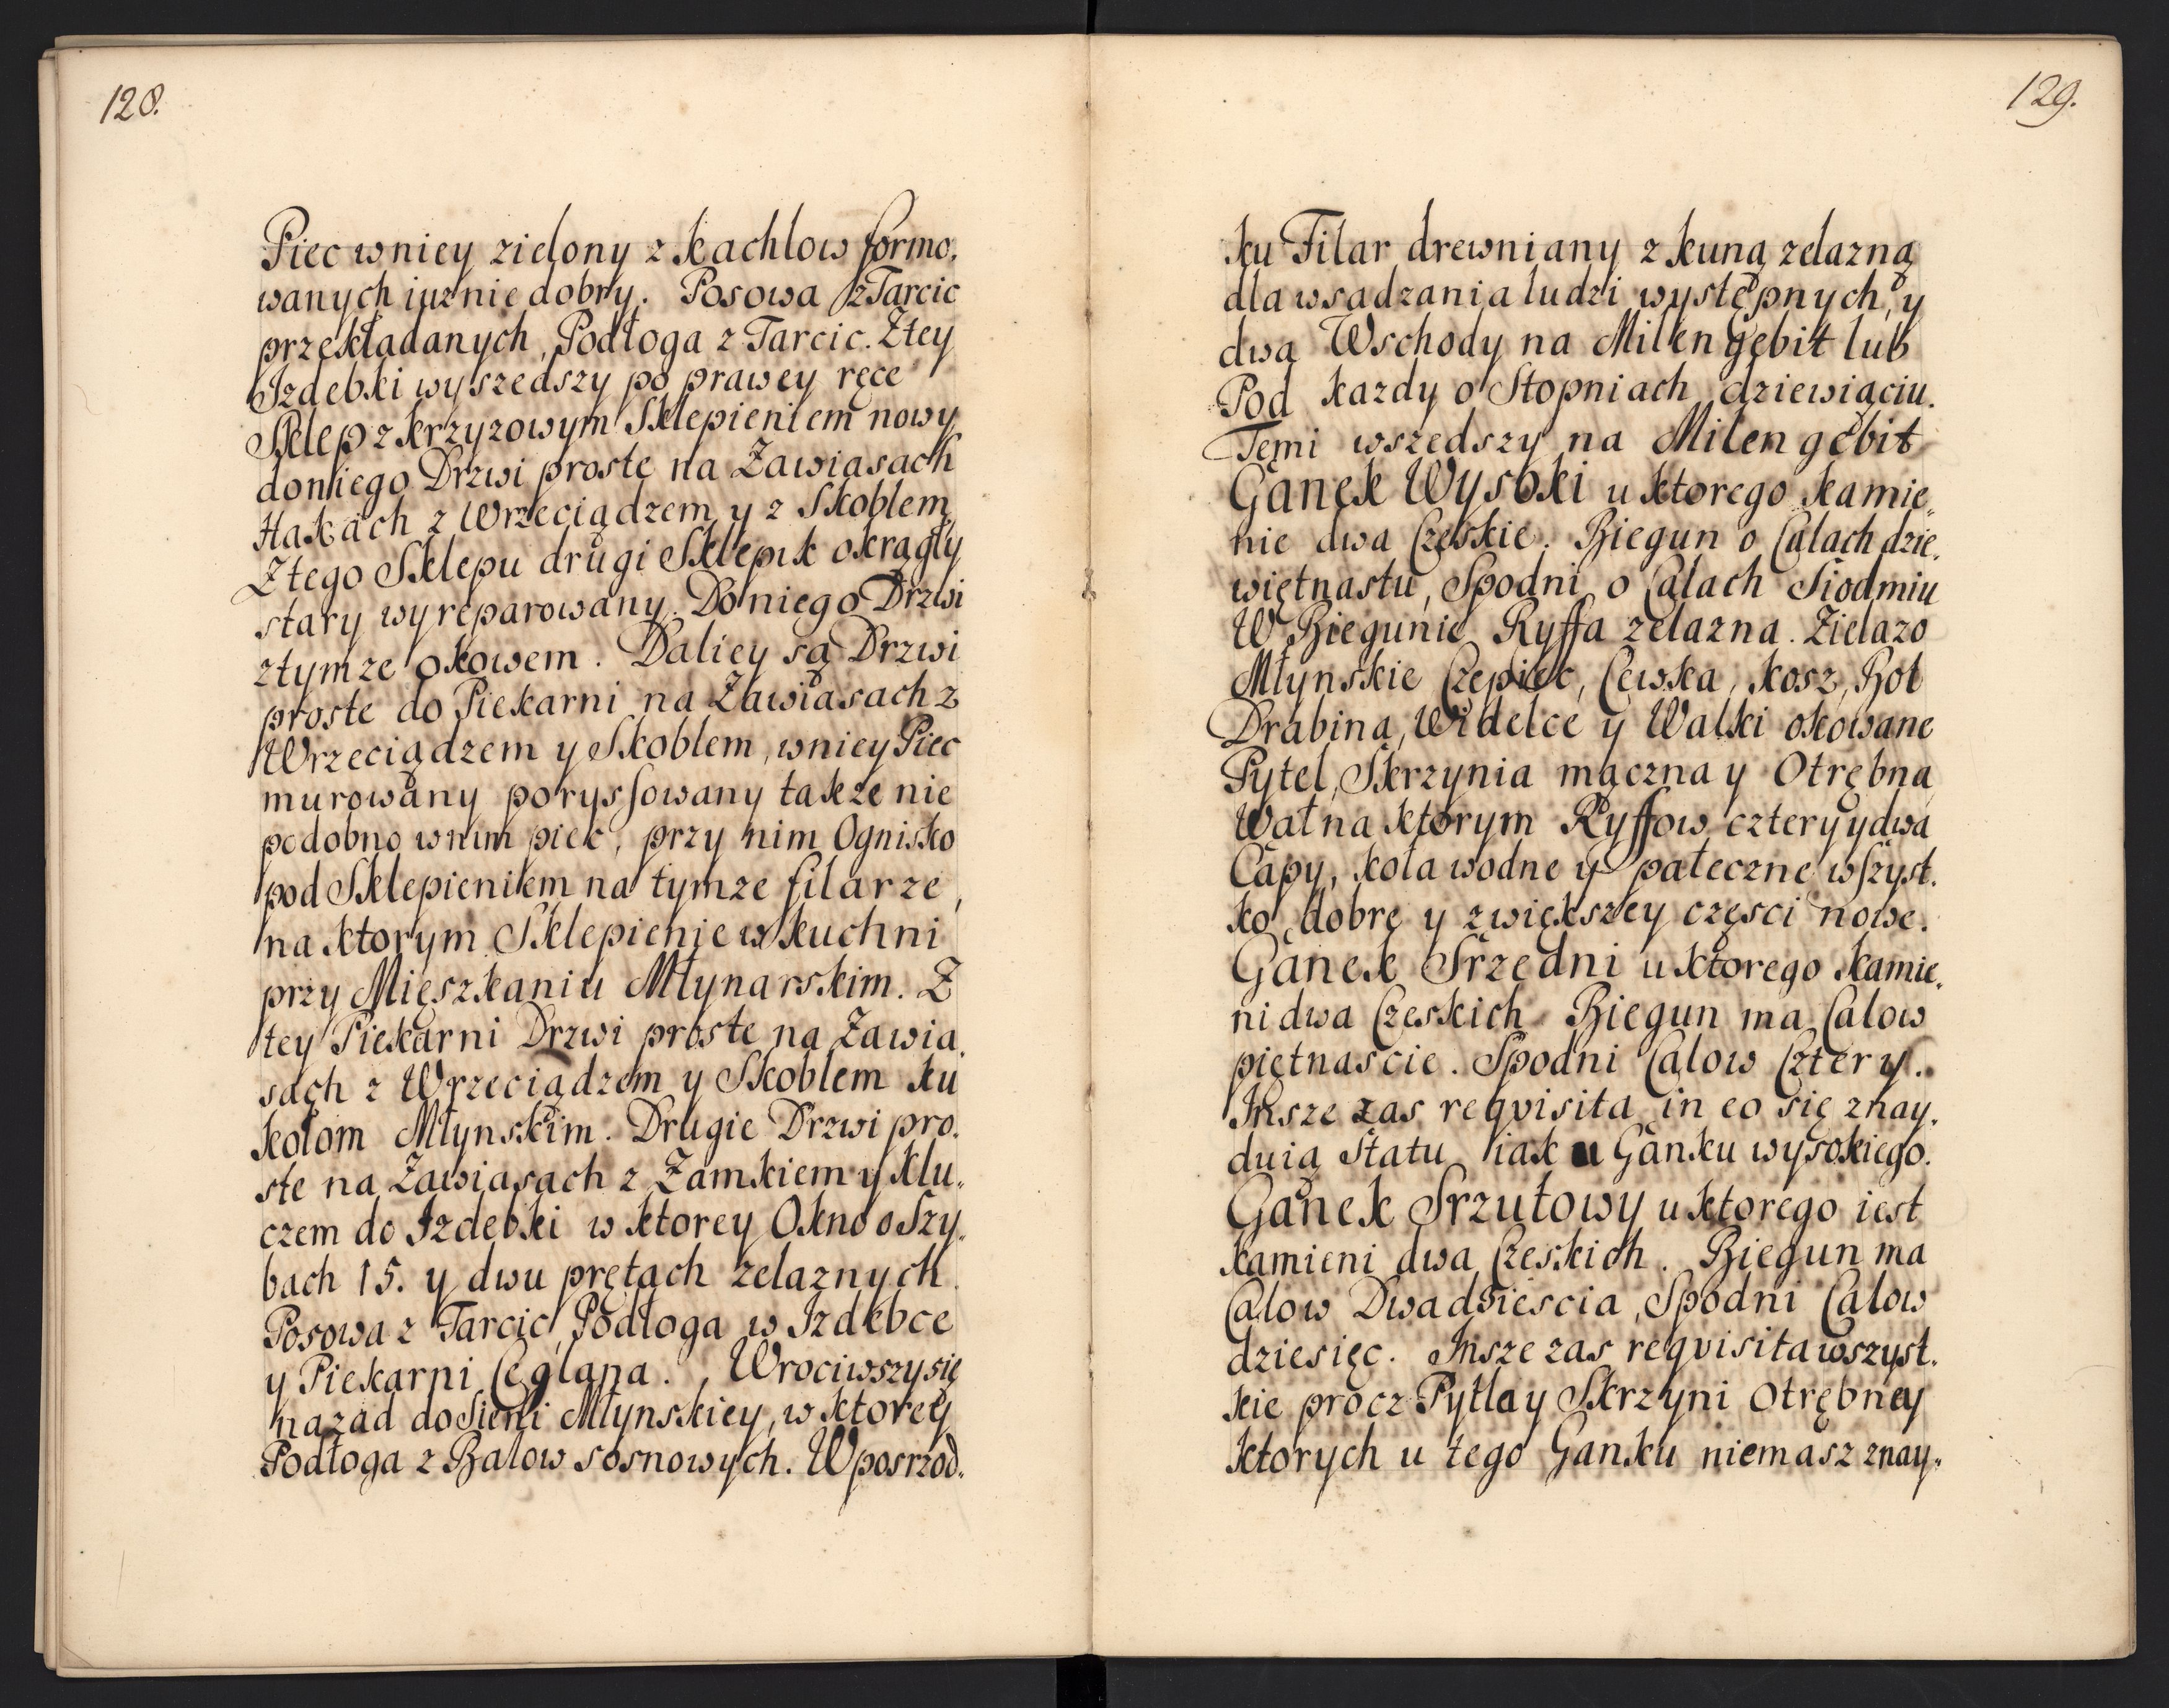 128.
Piec wniey zielony z kachlow formo.
wanych iuz nie dobry. Posowa z Tarcic
przekładanych, Podłoga z Tarcic. Ztey
Izdebki wyszedszy po prawey ręce
Sklep z krzyzowym Sklepieniem nowy
doniego Drzwi proste na Zawiasach
Hakach z Wrzeciądzem y z Skoblem
Ztego Sklepu drugi Sklepik okrągły
stary wyreparowany. Do niego Drzwi
ztymze okowem. Daliey są Drzwi
proste do Piekarni na Zawiasach z
Wrzeciądzem y Skoblem, wniey Piec
murowany poryssowany takze nie
podobno wnim piec, przy nim Ognisko
pod Sklepieniem na tymze filarze,
na ktorym Sklepienie w kuchni
przy Mięszkaniu Młynarskim. Z
tey Piekarni Drzwi proste na Zawia,
sach z Wrzeciądzem y Skoblem ku
kołom Młynskim. Drugie Drzwi pro.
ste na Zawiasach z Zamkiem y klu,
czem do Izdebki w ktorey Okno o Szy,
bach 15. y dwu prętach zelaznych
Posowa z Tarcic, Podłoga w Izdebce
y Piekarni Ceglana. Wrociwszy się
nazad do Sieni Młynskiey, w ktorey
Podłoga z Balow sosnowych. Wposrzod,
129.
ku Filar drewniany z kuną zelazną
dla wsadzania ludzi występnych, y
dwa Wschody na Milen gebit lub
Pod kazdy o Stopniach dziewiąciu.
Temi wszedszy na Milen gebit
Ganek Wysoki u ktorego kamie,
nie dwa Czeskie. Biegun o Calach dzie,
więtnastu, Spodni o Calach Siodmiu
W Biegunie Ryffa zelazna. Zielazo
Młynskie Czepiec, Cewka, kosz, Bol
Drabina, Widelce y Walki okowane
Pytel, Skrzynia mączna y Otrębna
Wał na ktorym Ryffow cztery y dwa
Capy, koła wodne y pałeczne wszyst.
ko dobre y zwiększey częsci nowe.
Ganek Srzedni u ktorego kamie,
ni dwa Czeskich Biegun ma Calow
piętnascie. Spodni Calow Cztery.
Insze zas reqvisita in eo się znay,
duią Statu iak u Ganku wysokiego.
Ganek Srzutowy u ktorego iest
kamieni dwa Czeskich. Biegun ma
Calow Dwadziescia, Spodni Calow
dziesięc. Insze zas reqvisita wszyst,
kie procz Pytla y Skrzyni Otrębney
ktorych u tego Ganku niemasz znay,